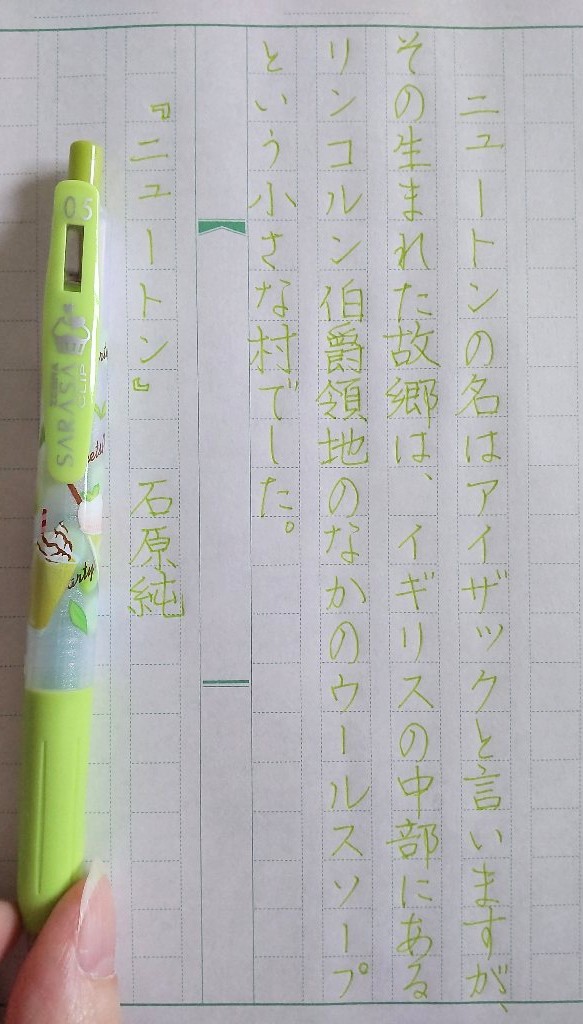 ニュートンの名はアイザックと言いますが、
その生まれた故郷は、イギリスの中部にある
リンコルン伯爵領地のなかのウールスソープ
という小さな村でした。
『ニュートン』 石原純
0.5
ZEBRA
SARASA
CLIP
arty